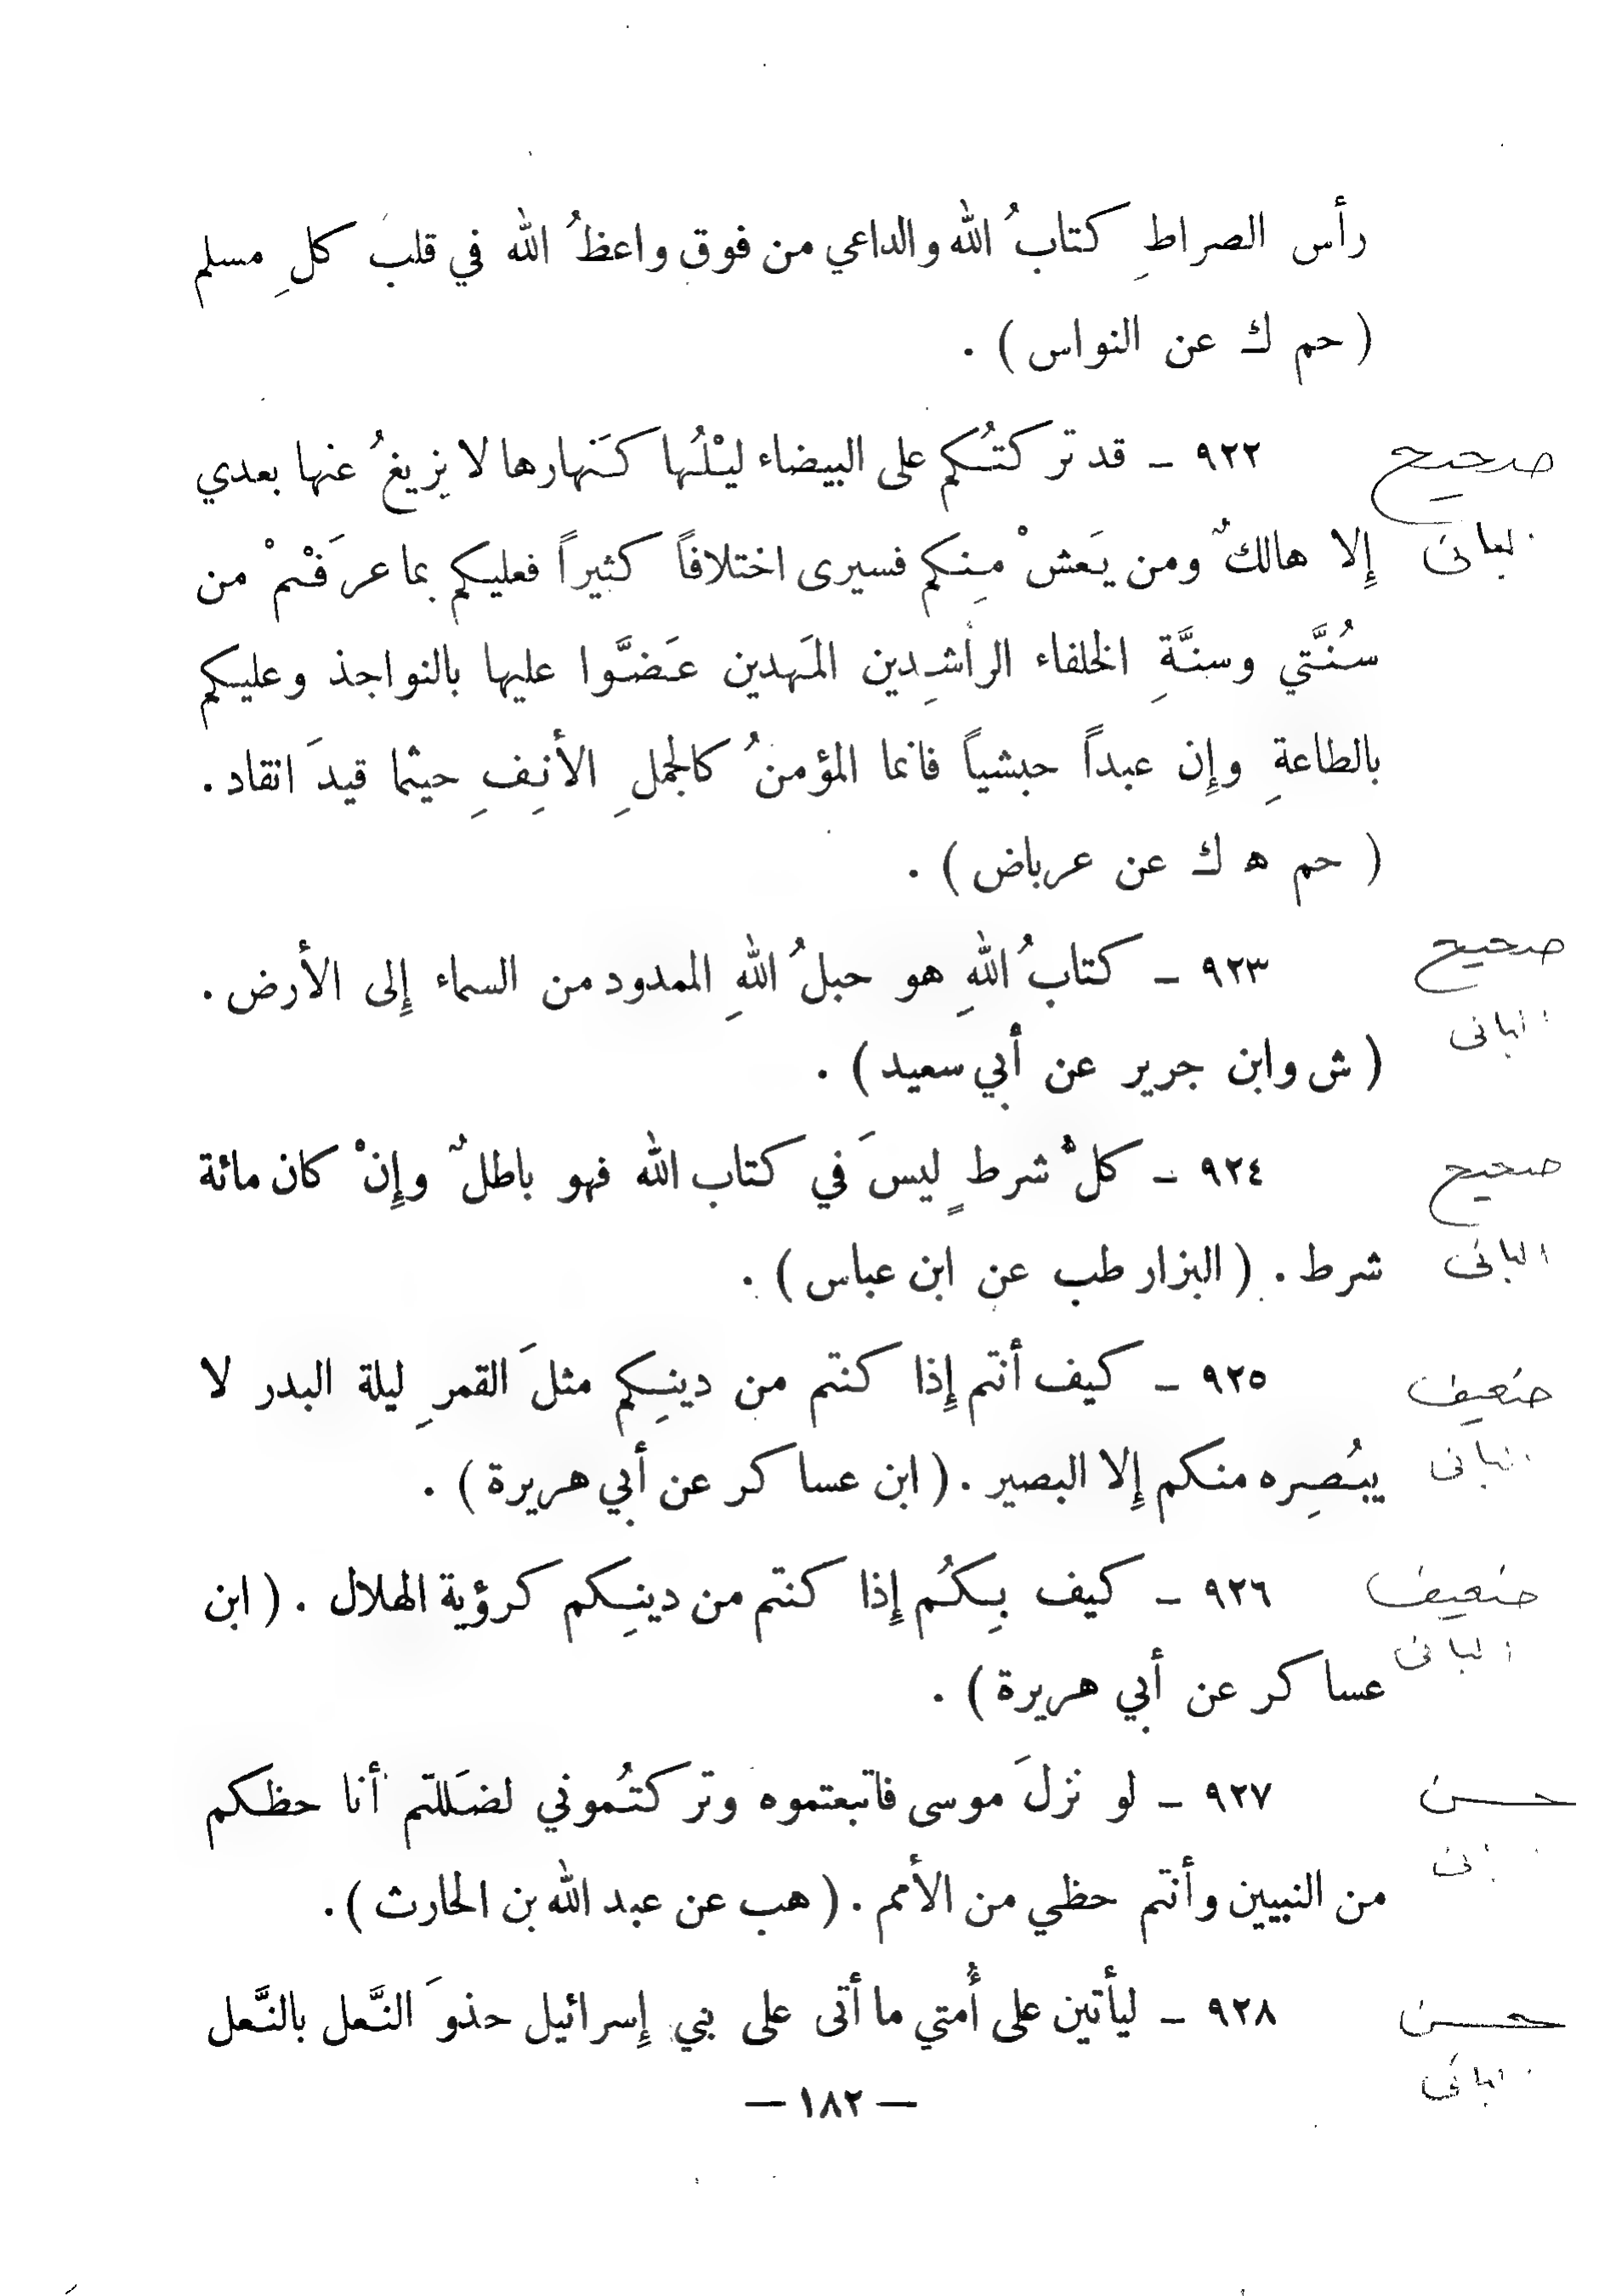 رأس الصراطِ كتابُ الله والداعي من فوق واعظُ الله في قلب كلِ مسلم
( حم ك عن النواس ) .
صحيح ٩٢٢ ـ قد تركتُكم على البيضاء ليْلُها كَنهارها لا يزيغُ عنها بعدي
البانى إِلا هالكٌ ومن يَعشْ مِنكم فسيرى اختلافاً كثيراً فعليكم بما عرَفْتمْ من
سُنَّتي وسنَّةِ الخلفاء الراشِدين المَهدين عَضَّوا عليها بالنواجذ وعليكم
بالطاعةِ وإِن عبداً حبشياً فانما المؤمنُ كالجملِ الأنِفِ حيثما قيدَ انقاد .
( حم ه ك عن عرباض ) .
صحيح ٩٢٣ ـ كتابُ اللهِ هو حبلُ اللهِ الممدود من السماء إِلى الأرض .
البانى ( ش وابن جرير عن أبي سعيد ) .
صحيح ٩٢٤ ـ كلُّ شرطٍ ليسَ في كتاب الله فهو باطلٌ وإِنْ كان مائة
البانى شرط . ( البزار طب عن ابن عباس ) .
ضعيف ٩٢٥ ـ كيف أنتم إِذا كنتم من دينِكم مثلَ القمرِ ليلة البدر لا
البانى يبُصِره منكم إِلا البصير . ( ابن عساكر عن أبي هريرة ) .
ضعيف ٩٢٦ ـ كيف بِكُم إِذا كنتم من دينِكم كرؤية الهلال . ( ابن
البانى عساكر عن أبي هريرة ) .
حسن ٩٢٧ ـ لو نزلَ موسى فاتبعتموه وتركتُموني لضَللتم أنا حظكم
من النبيين وأنتم حظي من الأمم . ( هب عن عبد الله بن الحارث ) .
حسن ٩٢٨ ـ ليأتين على أُمتي ما أتى على بني إِسرائيل حذوَ النَّعل بالنَّعل
البانى
— ١٨٢ —